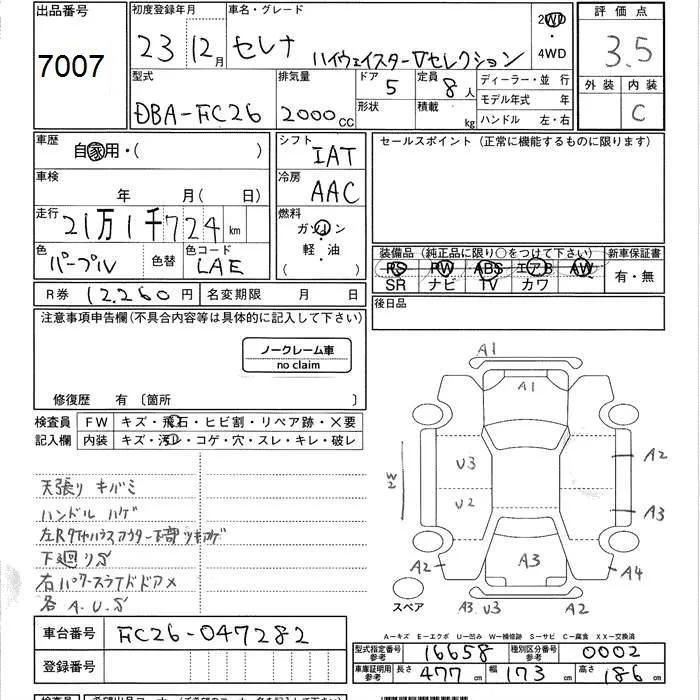 出品番号
7007
初度登録年月
23 12月
車名・グレード
セレナ ハイウェイスターVセレクション
2WD
・
4WD
評価点
3.5
外装 内装
C
型式
DBA-FC26
排気量
2000cc
ドア 5
形状
定員 8人
積載 kg
ディーラー・並行
モデル年式 年
ハンドル 左・右
車歴
自家用・( )
シフト
IAT
車検
年 月(日)
冷房
AAC
走行
21万1千724km
燃料
ガソリン
・
軽・油
( )
色
パープル
色替
色コード
LAE
セールスポイント(正常に機能するものに限ります)
装備品(純正品に限り○をつけて下さい)
新車保証書
PS PW ABS エアB AW
SR ナビ TV カワ
有・無
R券 12,260円
名変期限 月 日
後日品
注意事項申告欄(不具合内容等は具体的に記入して下さい)
ノークレーム車
no claim
修復歴 有〔箇所 〕
検査員
記入欄
FW キズ・飛石・ヒビ割・リペア跡・×要
内装 キズ・汚れ・コゲ・穴・スレ・キレ・破レ
天張り キバミ
ハンドル ハゲ
下廻りS
右パワースライドドア〆
各A.U.S
A1
A1
U3
U2
W2
A2
A3
A3
A2
A4
A3 U3
A2
スペア
車台番号
FC26-047282
登録番号
A-キズ E-エクボ U-凹み W-補修跡 S-サビ C-腐食 XX-交換済
型式指定番号
参考
16658
種別区分番号
参考
0002
車庫証明用
参考
長さ 477cm
幅 173cm
高さ 186cm